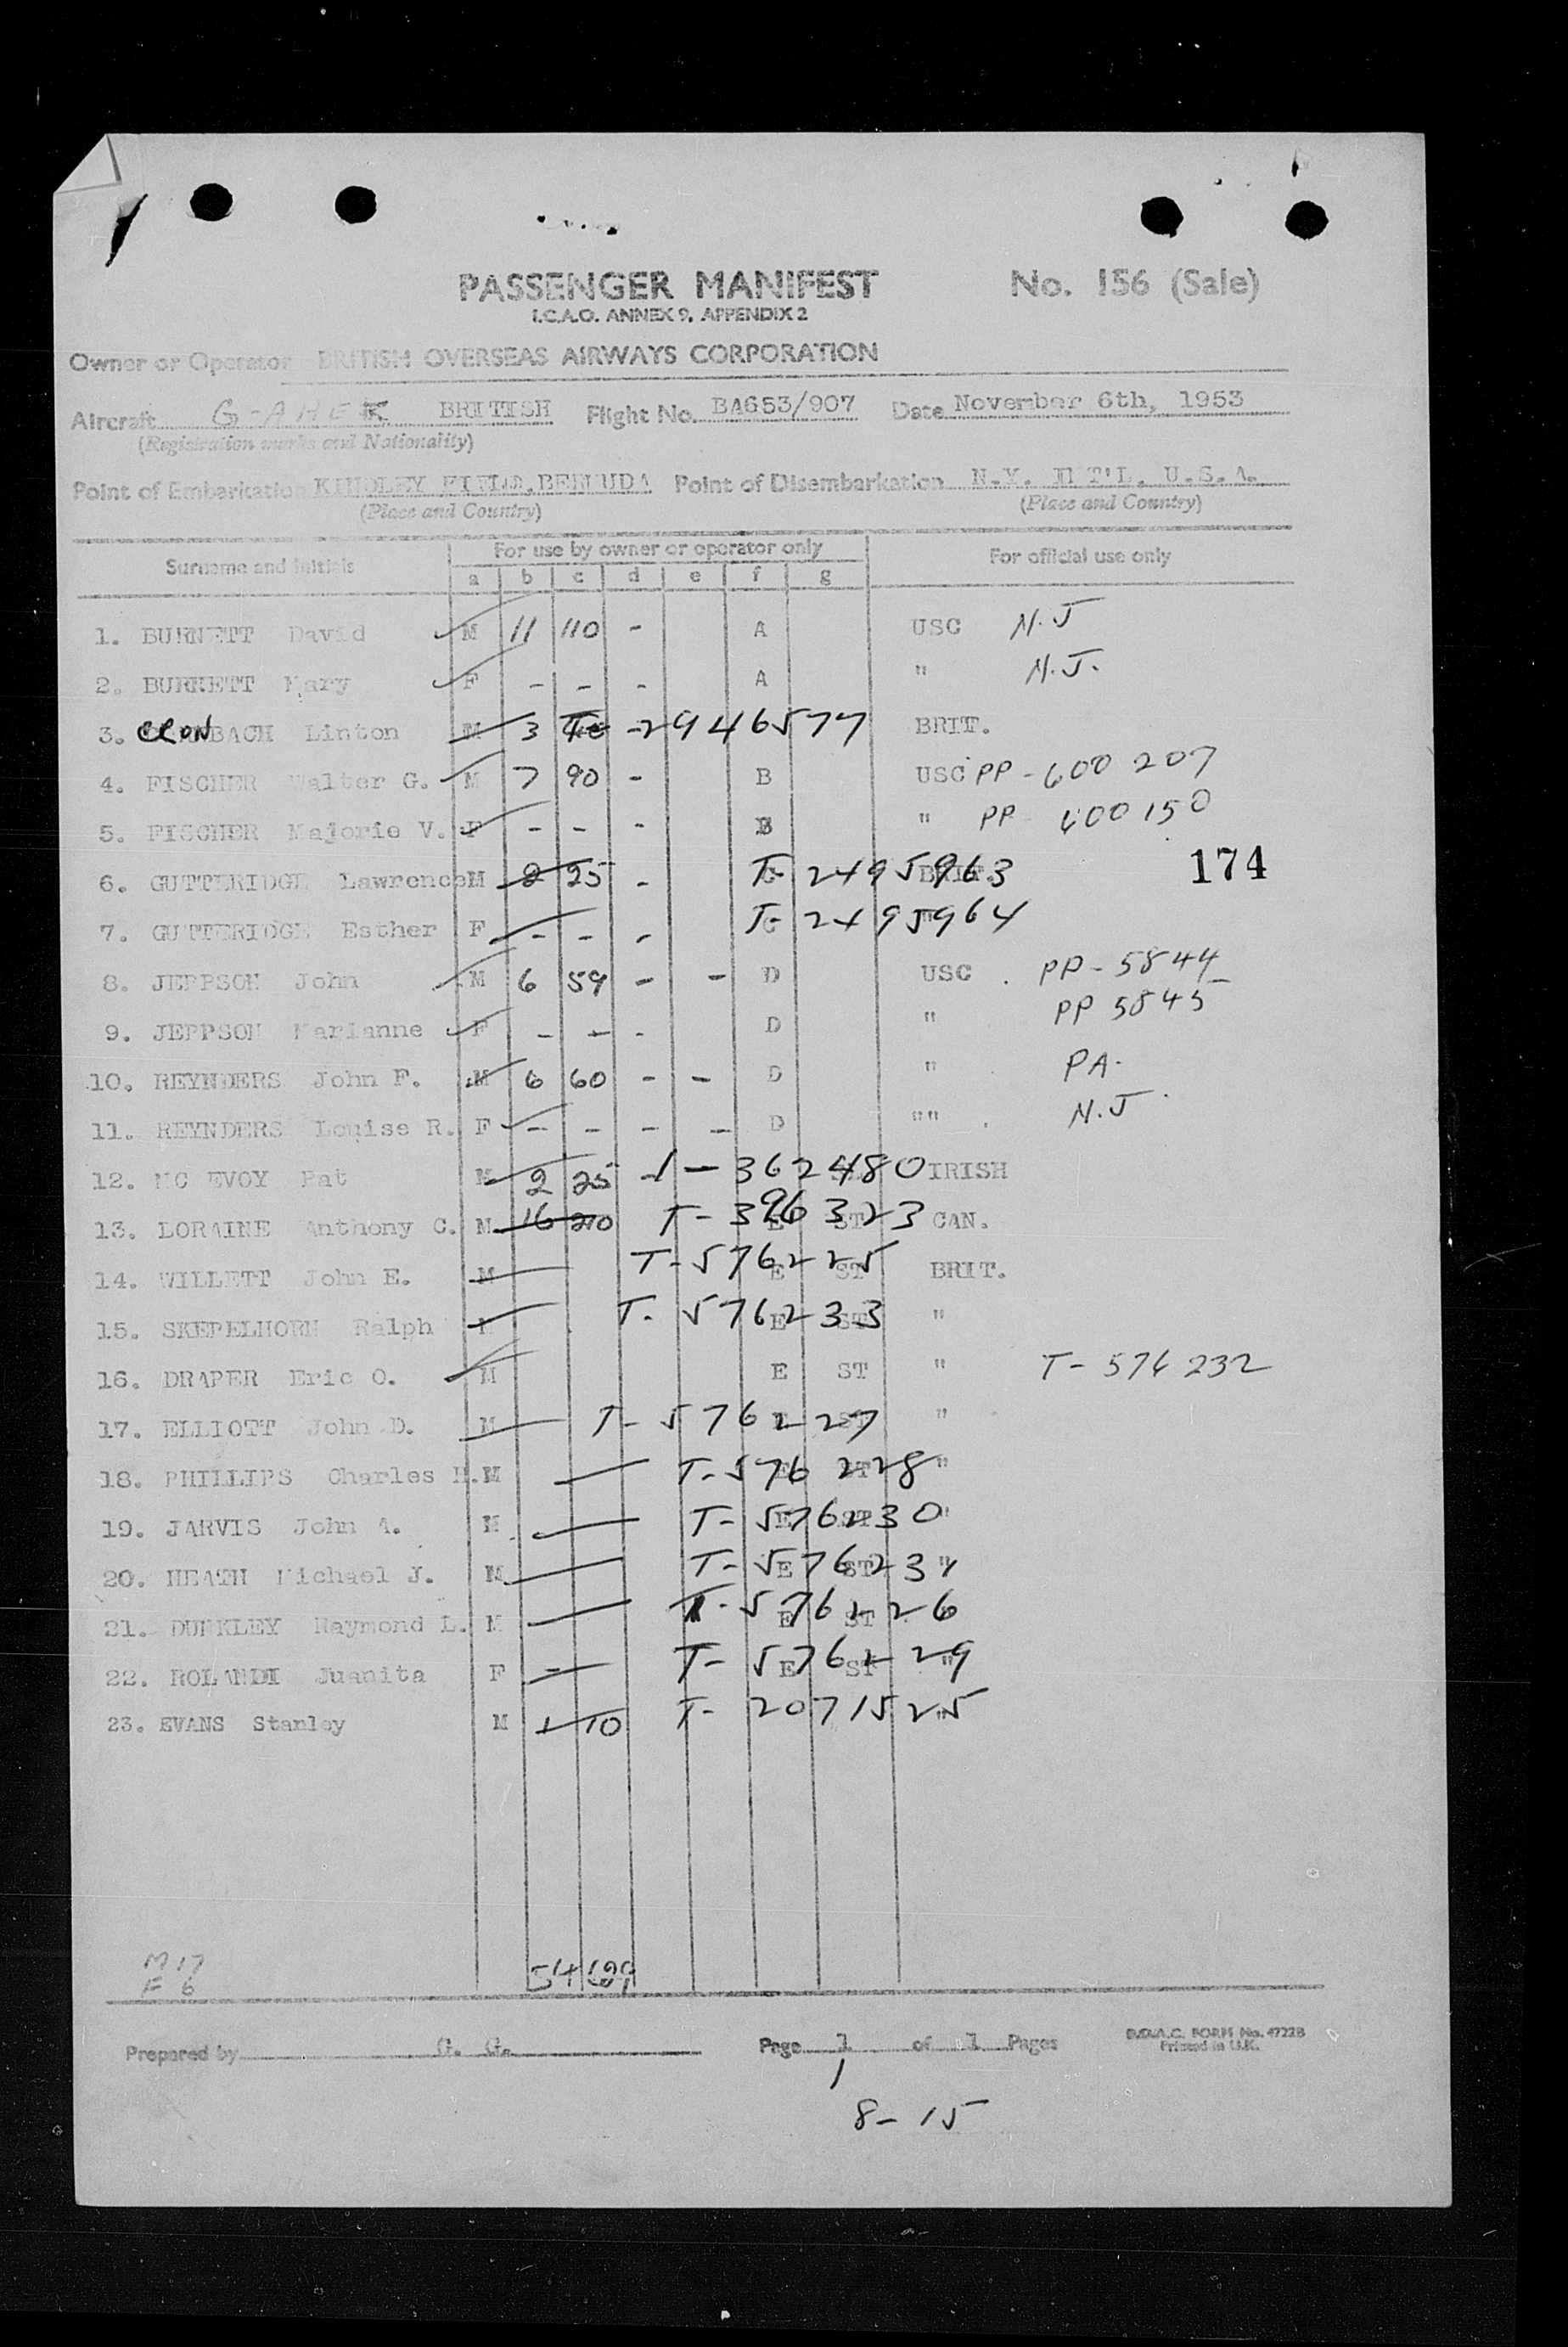 PASSENGER MANIFEST No. 156 (Sale)
I.C.A.O. ANNEX 9, APPENDIX 2
Owner or Operator BRITISH OVERSEAS AIRWAYS CORPORATION
Aircraft G-AHEK BRITISH Flight No. BA653/907 Date November 6th, 1953
(Registration marks and Nationality)
Point of Embarkation KINDLEY FIELD, BERMUDA Point of Disembarkation N.Y. INT'L. U.S.A.
(Place and Country) (Place and Country)
Surname and initials For use by owner or operator only For official use only
a b c d e f g
1. BURNETT David M 11 110 - A USC N.J
2. BURNETT Mary F - - - A " N.J.
3. CRONBACH Linton M 3 - 2946577 BRIT.
4. FISCHER Walter G. M 7 90 - B USC PP - 600 207
5. FISCHER Majorie V. F - - - B " PP 600150
6. GUTTERIDGE Lawrence M 2 25 - C T- 2495963 BRIT. 174
7. GUTTERIDGE Esther F - - - C T- 2495964
8. JEPPSON John M 6 59 - - D USC PP - 5844
9. JEPPSON Marianne F - - - D " PP 5845
10. REYNDERS John F. M 6 60 - - D " PA.
11. REYNDERS Louise R. F - - - - D "" N.J
12. MC EVOY Pat M 2 25 - 362480 IRISH
13. LORAINE Anthony C. M 16 210 T- 396323 E ST CAN.
14. WILLETT John E. M T- 576225 E ST BRIT.
15. SKEPELHORN Ralph M T- 576233 E ST "
16. DRAPER Eric O. M E ST " T- 576232
17. ELLIOTT John D. M T- 576227 E ST "
18. PHILLIPS Charles H. M T- 576228 E ST "
19. JARVIS John A. M T- 576230 E ST "
20. HEATH Michael J. M T- 576231 E ST "
21. DUNKLEY Raymond L. M T- 576226 E ST
22. ROLANDI Juanita F T- 576229 E ST "
23. EVANS Stanley M 1 10 T- 2071525 "
M 17
F 6
54 629
Prepared by G. G. Page 1 of 1 Pages B.O.A.C. FORM No. 4722B
Printed in U.K.
1
8- 15